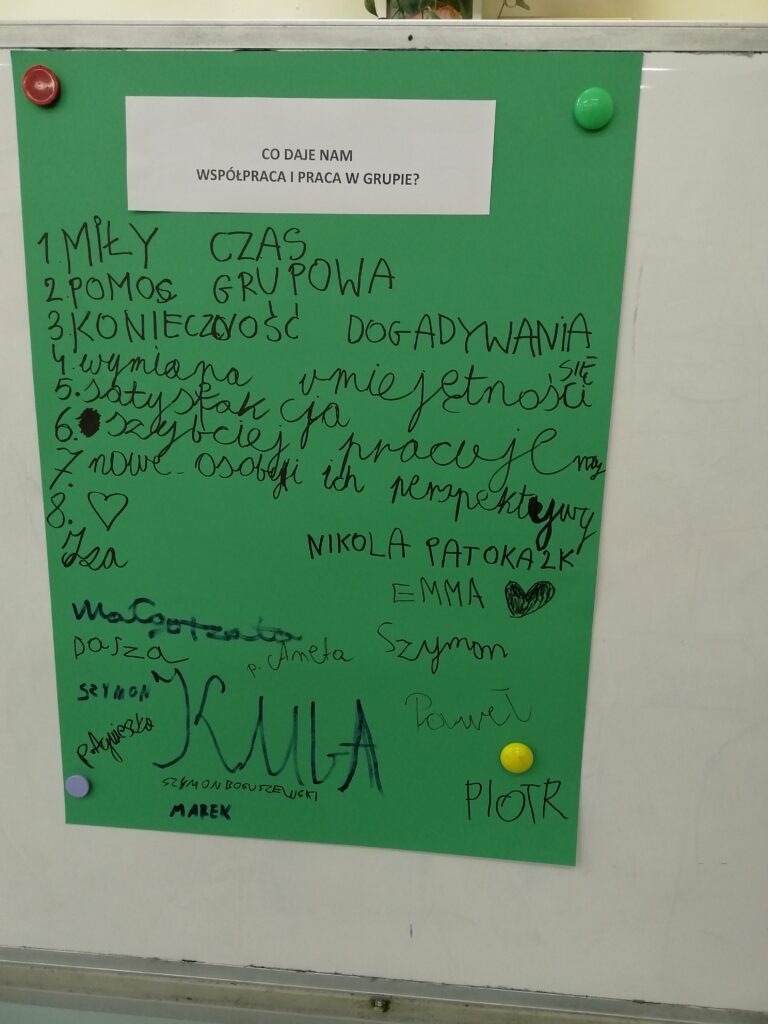 CO DAJE NAM
WSPÓŁPRACA I PRACA W GRUPIE?
1. MIŁY CZAS
2. POMOC GRUPOWA
3. KONIECZNOŚĆ DOGADYWANIA
SIĘ
4. wymiana umiejętności
5. satysfakcja
6. szybciej pracujemy
7. nowe osoby i ich perspektywy
8. ♡
Iza
NIKOLA PATOKA 2K
EMMA ♥
Małgorzata
Dasza
p. Aneta
Szymon
SZYMON
KULA
Paweł
p. Agnieszka
SZYMON BOGUSZEWSKI
MAREK
PIOTR